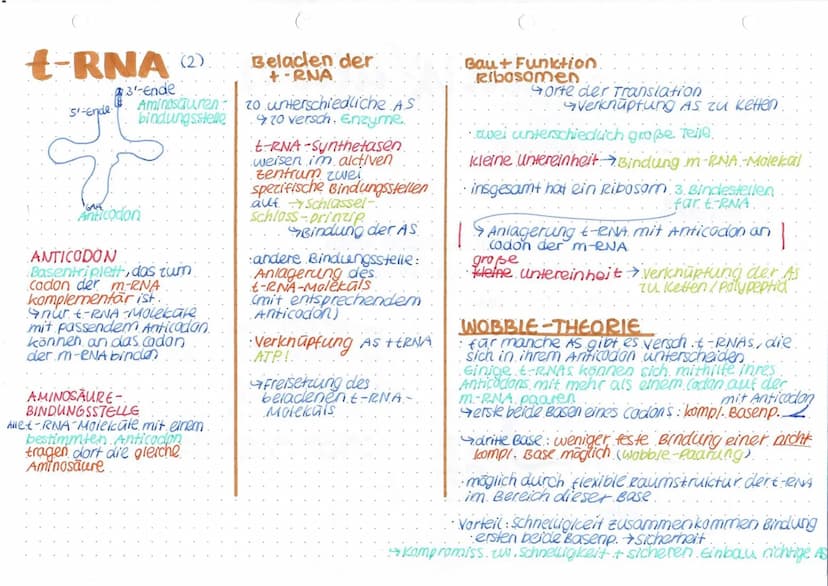 t-RNA (2)
3'-Ende
5'-Ende
Aminosäuren-
bindungsstelle
Anticodon
ANTICODON
Basentriplett, das zum
codon der m-RNA
komplementär ist.
↳ nur t-RNA-Moleküle
mit passendem Anticodon
können an das codon
der m-RNA binden
AMINOSÄURE-
BINDUNGSSTELLE
Alle t-RNA-Moleküle mit einem
bestimmten Anticodon
tragen dort die gleiche
Aminosäure
Beladen der
t-RNA
20 unterschiedliche AS
↳ 20 versch. Enzyme.
t-RNA-Synthetasen
weisen im aktiven
zentrum zwei
spezifische Bindungsstellen
auf → Schlüssel-
schloss-prinzip
↳ Bindung der AS
· andere Bindungsstelle:
Anlagerung des
t-RNA-Moleküls
(mit entsprechendem
Anticodon)
· Verknüpfung AS + tRNA
ATP!
↳ Freisetzung des
beladenen t-RNA-
Moleküls
Bau + Funktion
Ribosomen
↳ Orte der Translation
↳ Verknüpfung AS zu Ketten
· zwei unterschiedlich große Teile.
kleine Untereinheit → Bindung m-RNA-Molekül
· insgesamt hat ein Ribosom 3 Bindestellen
für t-RNA
↳ Anlagerung t-RNA mit Anticodon an
codon der m-RNA
große
kleine Untereinheit → Verknüpfung der AS
zu Ketten/Polypeptid
WOBBLE-THEORIE
· für manche AS gibt es versch. t-RNAs, die
sich in ihrem Anticodon unterscheiden
Einige t-RNAs können sich mithilfe ihres
Anticodons mit mehr als einem Codon auf der
m-RNA paaren
mit Anticodon
↳ erste beide Basen eines Codons: kompl. Basenp.
↳ dritte Base: weniger feste Bindung einer nicht
kompl. Base möglich (Wobble-Paarung)
· möglich durch flexible Raumstruktur der t-RNA
im Bereich dieser Base
Vorteil: Schnelligkeit zusammenkommen Bindung
· ersten beide Basenp. → Sicherheit
→ Kompromiss zw. Schnelligkeit + sicheren Einbau richtige AS